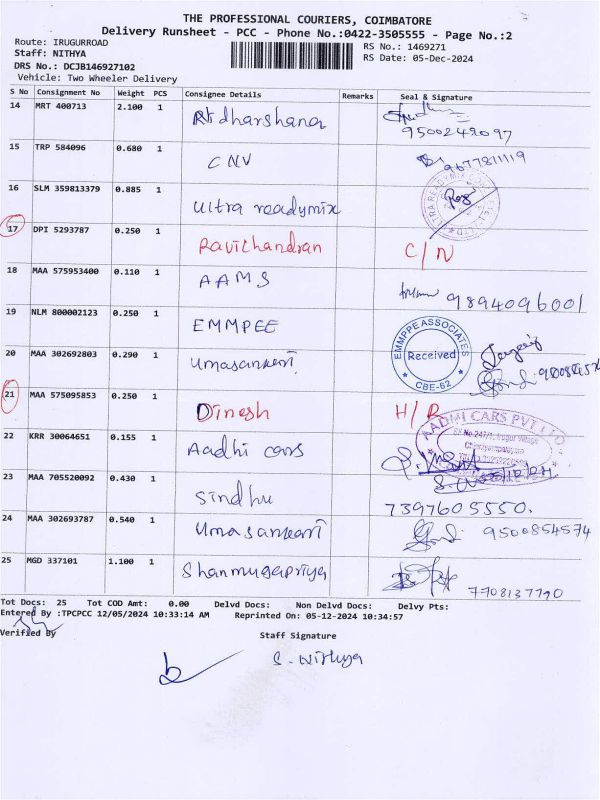 THE PROFESSIONAL COURIERS, COIMBATORE
Delivery Runsheet - PCC - Phone No.:0422-3505555 - Page No.:2
Route: IRUGURROAD
RS No.: 1469271
Staff: NITHYA
RS Date: 05-Dec-2024
DRS No.: DCJB146927102
Vehicle: Two Wheeler Delivery
S No Consignment No Weight PCS Consignee Details Remarks Seal & Signature
14 MRT 400713 2.100 1 dharshana
9500249097
15 TRP 584096 0.680 1 CNV 9677211119
16 SLM 359813379 0.885 1 Ultra readymix
17 DPI 5293787 0.250 1 Ravichandran C/N
18 MAA 575953400 0.110 1 AAMS 9894096001
19 NLM 800002123 0.250 1 EMMPEE
EMMPPE ASSOCIATES
Received
CBE-62
20 MAA 302692803 0.290 1 Umasankari
21 MAA 575095853 0.250 1 Dinesh H/R
AADHI CARS PVT LTD
22 KRR 30064651 0.155 1 Aadhi cars
23 MAA 705520092 0.430 1 Sindhu
7397605550.
24 MAA 302693787 0.540 1 Umasankari 9500854574
25 MGD 337101 1.100 1 Shanmugapriya
7708137790
Tot Docs: 25 Tot COD Amt: 0.00 Delvd Docs: Non Delvd Docs: Delvy Pts:
Entered By :TPCPCC 12/05/2024 10:33:14 AM Reprinted On: 05-12-2024 10:34:57
Verified By Staff Signature
S. Nithya